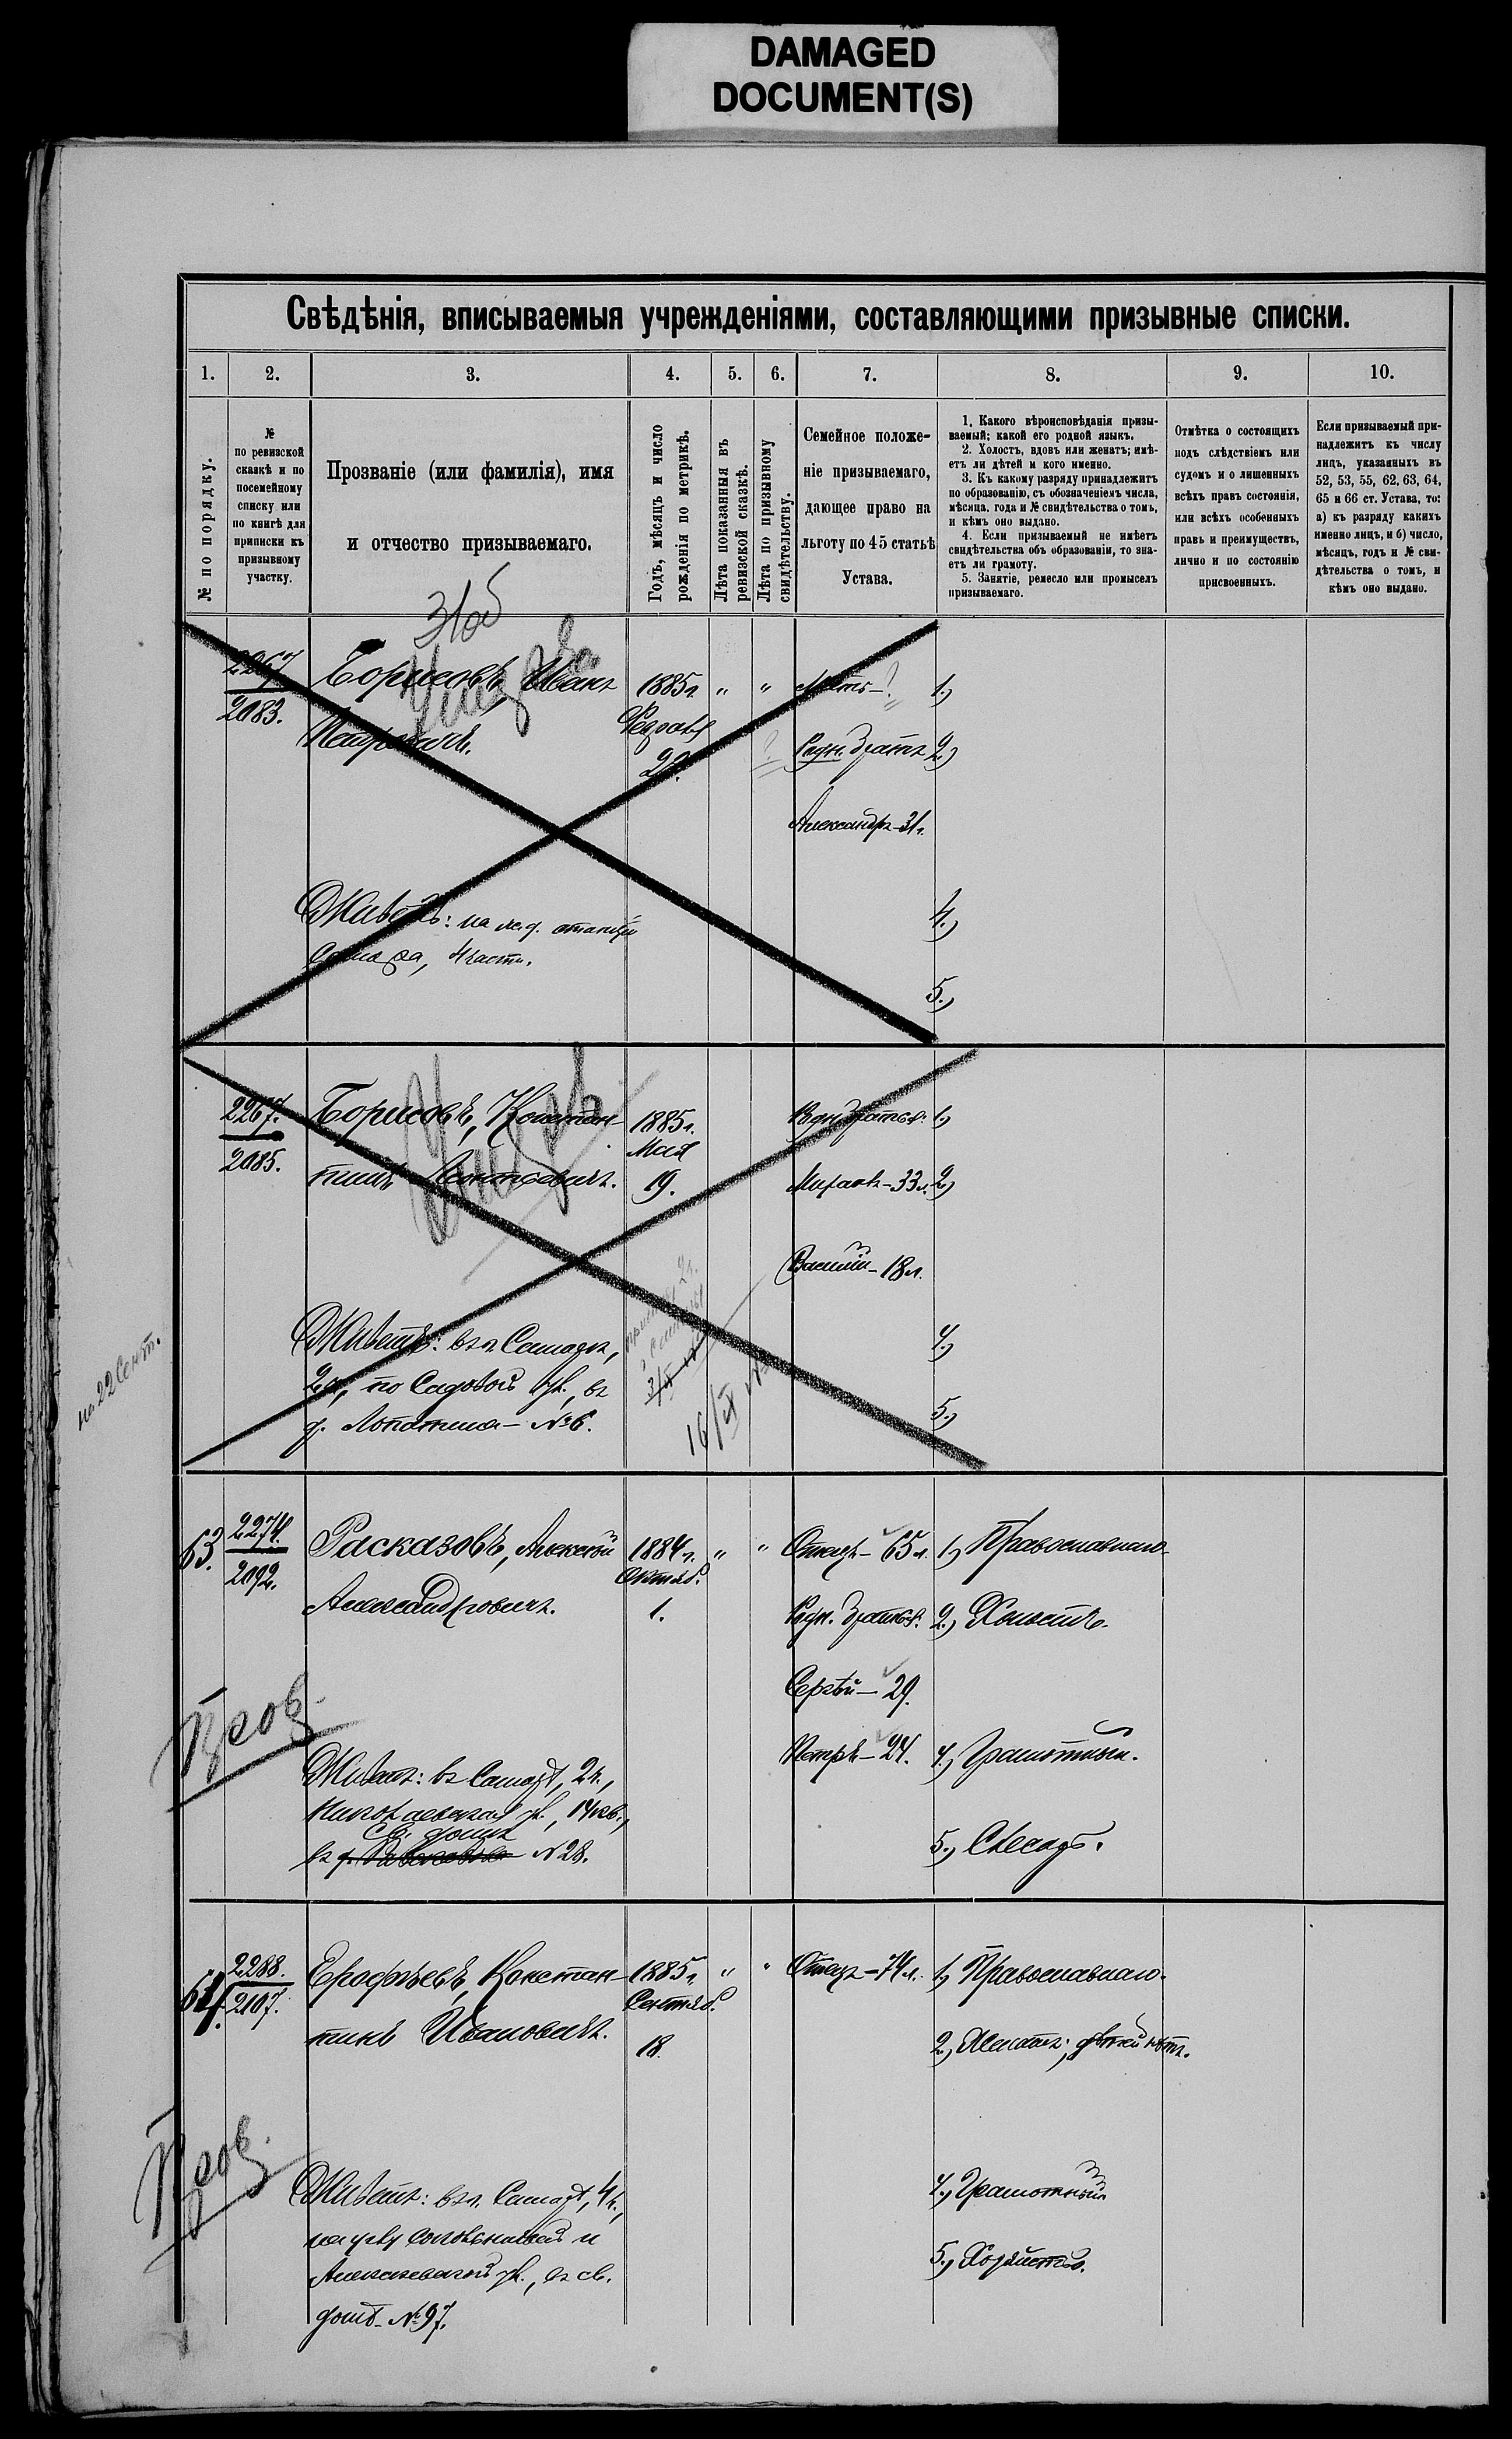 DAMAGED
DOCUMENT(S)
Свѣдѣнія, вписываемыя учрежденіями, составляющими призывные списки.
1. 2. 3. 4. 5. 6. 7. 8. 9. 10.
№ по порядку.
№
по ревизской
сказкѣ и по
посемейному
списку или
по книгѣ для
приписки къ
призывному
участку.
Прозваніе (или фамилія), имя
и отчество призываемаго.
Годъ, мѣсяцъ и число
рожденія по метрикѣ.
Лѣта показанныя въ
ревизской сказкѣ.
Лѣта по призывному
свидѣтельству.
Семейное положе-
ніе призываемаго,
дающее право на
льготу по 45 статьѣ
Устава.
1. Какого вѣроисповѣданія призы-
ваемый; какой его родной языкъ.
2. Холостъ, вдовъ или женатъ; имѣ-
етъ ли дѣтей и кого именно.
3. Къ какому разряду принадлежитъ
по образованію, съ обозначеніемъ числа,
мѣсяца, года и № свидѣтельства о томъ,
и кѣмъ оно выдано.
4. Если призываемый не имѣетъ
свидѣтельства объ образованіи, то зна-
етъ ли грамоту.
5. Занятіе, ремесло или промыселъ
призываемаго.
Отмѣтка о состоящихъ
подъ слѣдствіемъ или
судомъ и о лишенныхъ
всѣхъ правъ состоянія,
или всѣхъ особенныхъ
правъ и преимуществъ,
лично и по состоянію
присвоенныхъ.
Если призываемый при-
надлежитъ къ числу
лицъ, указанныхъ въ
52, 53, 55, 62, 63, 64,
65 и 66 ст. Устава, то:
а) къ разряду какихъ
именно лицъ, и б) число,
мѣсяцъ, годъ и № сви-
дѣтельства о томъ, и
кѣмъ оно выдано.
2267.
2083.
Борисовъ, Иванъ
Петровичъ.
1885г.
" "
Мать-?
Родн. братъ
Александръ-31г.
1.)
2.)
4.)
5.)
Живетъ: на ж.д. станціи
Самара, 4 части.
2267.
2085.
Борисовъ, Констан-
тинъ Леонтьевичъ.
1885г.
Мая
19.
Родн. братья:
Василій-18л.
1.)
2.)
4.)
5.)
Живетъ: въ г. Самарѣ,
2ч., по Садовой ул., въ
д. Лопатина - №6.
16/IX
на 22 Сент.
63.
2274.
2092.
Расказовъ, Алексѣй
Александровичъ.
1884г.
Октяб.
1.
" "
Отецъ-65л.
Родн. братья:
Сергѣй-29.
Петръ-24.
1.) Православнаго
2.) Холостъ.
4.) Грамотный.
5.) Слесарь.
Живетъ: въ Самарѣ, 2ч.,
Николаевская ул., 14 кв.,
св. домъ
№28.
64.
2288.
2107.
Ерофѣевъ, Констан-
тинъ Ивановичъ.
1885г.
Сентяб.
18.
" "
Отецъ-74л.
1.) Православнаго.
2.) Женатъ; дѣтей нѣтъ.
4.) Грамотный
Живетъ: въ г. Самарѣ, 4ч.,
на углу Соловьиной и
Алексѣевской ул., въ св.
домѣ-№97.